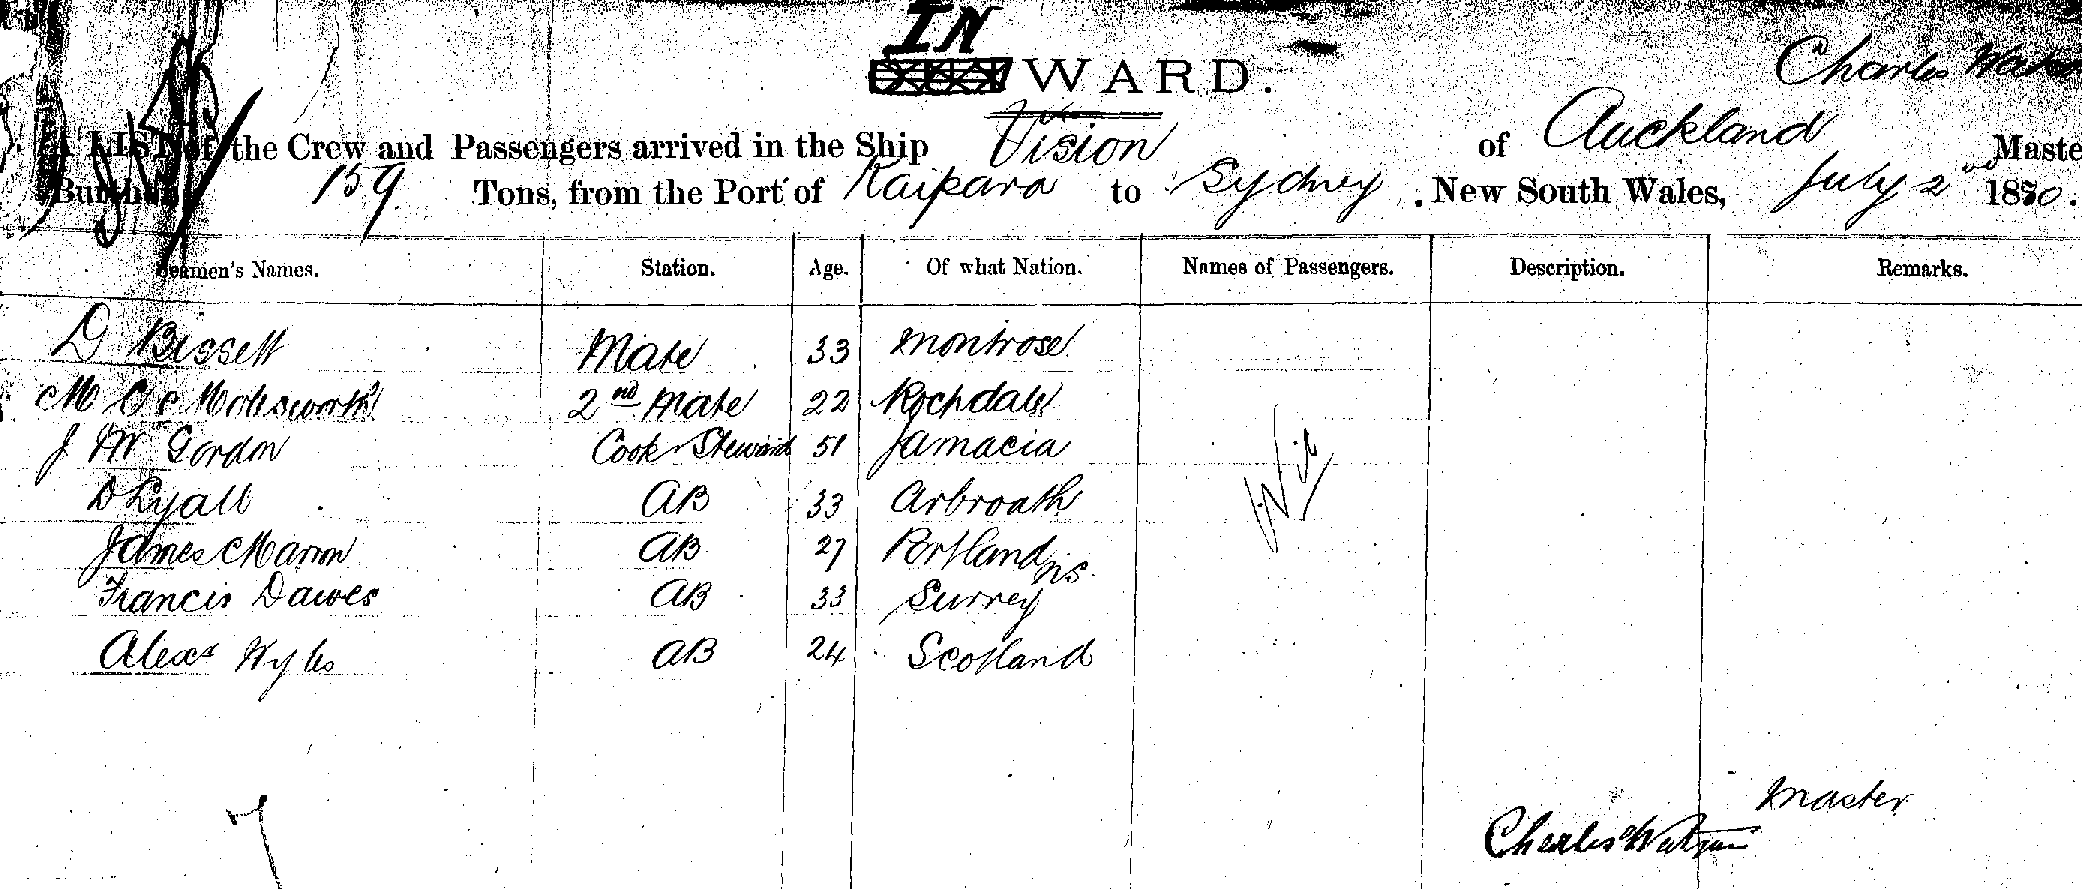 IN
WARD.
Charles Watson
A LIST of the Crew and Passengers arrived in the Ship Vision of Auckland Maste
Burthen 159 Tons, from the Port of Kaipara to Sydney, New South Wales, July 2nd 1880.
Seamen's Names. Station. Age. Of what Nation. Names of Passengers. Description. Remarks.
D Bissett Mate 33 Montrose
M Molesworth 2nd Mate 22 Rochdale
J W Gordon Cook Steward 51 Jamacia
D Lyall AB 33 Arbroath
James AB 27 Portland
Francis Dawes AB 33 Surrey
Alexr Wyles AB 24 Scotland
Master
Charles Watson
7